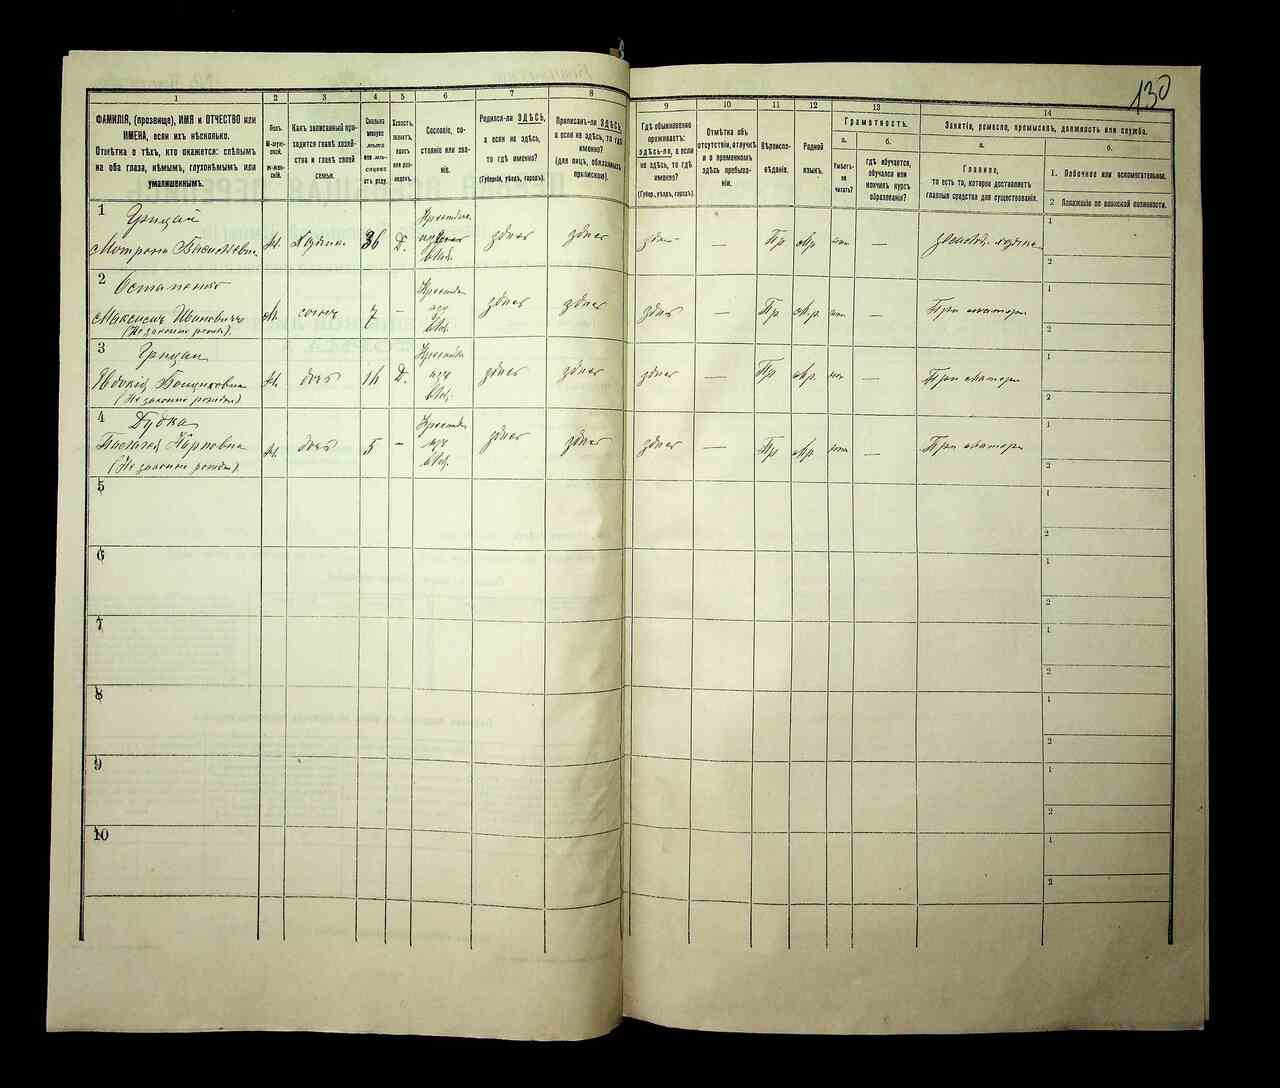 130
1 2 3 4 5 6 7 8 9 10 11 12 13 14
ФАМИЛІЯ, (прозвище), ИМЯ и ОТЧЕСТВО или
ИМЕНА, если ихъ нѣсколько.
Отмѣтка о тѣхъ, кто окажется: слѣпымъ
на оба глаза, нѣмымъ, глухонѣмымъ или
умалишеннымъ.
Полъ.
М-мужской.
Ж-женскій.
Какъ записанный приходится
главѣ хозяйства
и главѣ своей
семьи.
Сколько
минуло
лѣтъ
или мѣсяцевъ
отъ роду.
Холостъ,
женатъ,
вдовъ
или разведенъ.
Сословіе, состояніе
или званіе.
Родился-ли ЗДѢСЬ,
а если не здѣсь,
то гдѣ именно?
(Губернія, уѣздъ, городъ).
Приписанъ-ли ЗДѢСЬ,
а если не здѣсь, то гдѣ
именно?
(для лицъ, обязанныхъ
припискою).
Гдѣ обыкновенно
проживаетъ:
здѣсь-ли, а если
не здѣсь, то гдѣ
именно?
(Губер., уѣздъ, городъ).
Отмѣтка объ
отсутствіи, отлучкѣ
и о временномъ
здѣсь пребываніи.
Вѣроисповѣданіе.
Родной
языкъ.
Грамотность.
а.
Умѣетъ-ли
читать?
б.
гдѣ обучается,
обучался или
кончилъ курсъ
образованія?
Занятіе, ремесло, промыселъ, должность или служба.
а.
Главное,
то есть то, которое доставляетъ
главныя средства для существованія.
б.
1. Побочное или вспомогательное.
2 Положеніе по воинской повинности.
1 Грицай
Мотрона ж. 36 здѣсь здѣсь здѣсь — Пр — 1
2
2 Остапенко
Максимъ Ивановичъ 7 — здѣсь здѣсь здѣсь — Пр — При матери 1
(Незаконно рожд.) 2
3 Грицай
Евдокія ж. дочь 16 здѣсь здѣсь здѣсь — Пр — При матери 1
(Незаконно рожден) 2
4 Дудка
Карповна ж. дочь 5 — здѣсь здѣсь здѣсь — Пр — При матери 1
(Незаконно рожден) 2
5 1
2
6 1
2
7 1
2
8 1
2
9 1
2
10 1
2